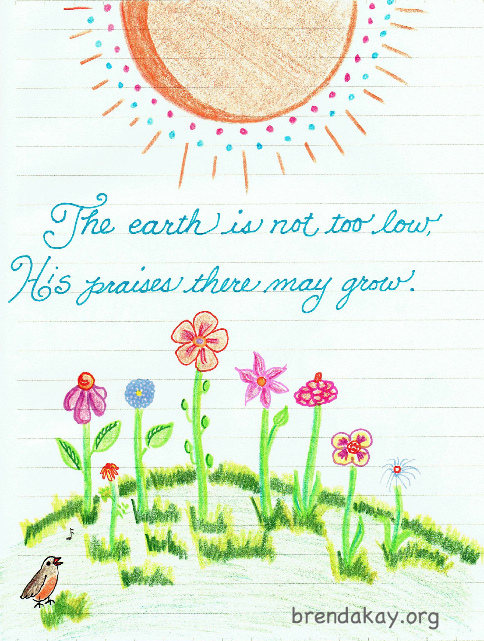 The earth is not too low,
His praises there may grow.
brendakay.org